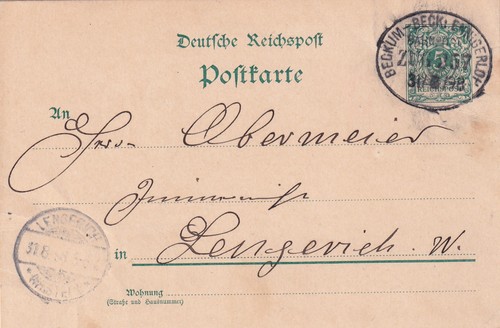 Deutsche Reichspost
Postkarte
BECKUM - BECK. ENNIGERLOH
BAHNPOST
ZUG 957
31 8 98
An
Herrn Obermeier
in Lengerich. W.
LENGERICH
31 8 98
Wohnung
(Straße und Hausnummer)